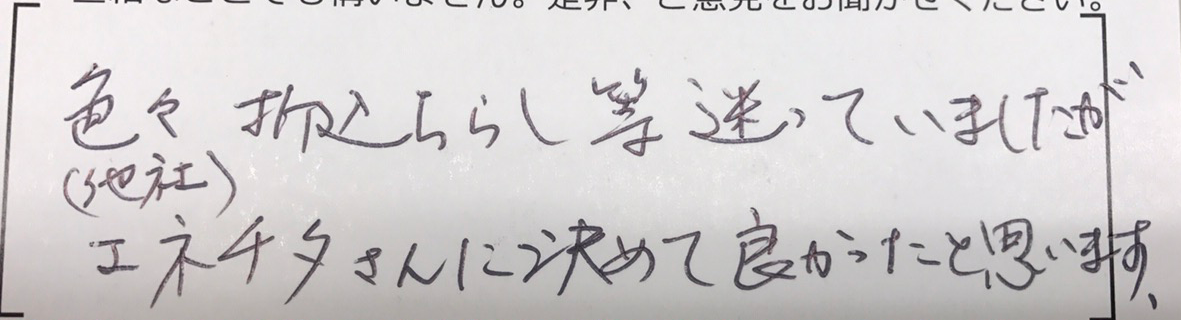 構いません。是非、ご意見をお聞かせください。
色々折込ちらし等迷っていましたが
(他社)
エネチタさんに決めて良かったと思います、